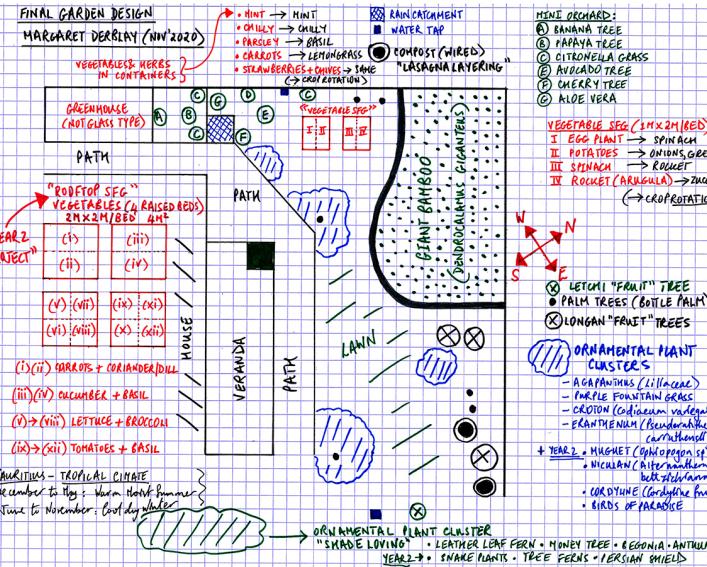 FINAL GARDEN DESIGN
MARGARET DERBLAY (NOV' 2020)
VEGETABLES & HERBS
IN CONTAINERS
• MINT → MINT
• CHILLY → CHILLY
• PARSLEY → BASIL
• CARROTS → LEMONGRASS
• STRAWBERRIES + CHIVES → SAME
(→ CROP ROTATION)
RAIN CATCHMENT
WATER TAP
COMPOST (WIRED)
"LASAGNA LAYERING"
MINI ORCHARD:
A BANANA TREE
B PAPAYA TREE
C CITRONELLA GRASS
E AVOCADO TREE
F CHERRY TREE
G ALOE VERA
GREENHOUSE
(NOT GLASS TYPE)
A
B
C
C
G
D
E
F
C
"VEGETABLE SFG"
I II III IV
VEGETABLE SFG (1M X 2M/BED)
I EGG PLANT → SPINACH
II POTATOES → ONIONS, GRE
III SPINACH → ROCKET
IV ROCKET (ARUGULA) → ZUC
(→ CROP ROTATION
PATH
PATH
"ROOFTOP SFG"
VEGETABLES (4 RAISED BEDS)
2M X 2M/BED 4M²
EAR 2
OJECT"
(i) (iii)
(ii) (iv)
(v) (vii) (ix) (xi)
(vi) (viii) (x) (xii)
(i)(ii) CARROTS + CORIANDER/DILL
(iii)(iv) CUCUMBER + BASIL
(v) → (viii) LETTUCE + BROCCOLI
(ix) → (xii) TOMATOES + BASIL
HOUSE
VERANDA
PATH
LAWN
GIANT BAMBOO
(DENDROCALAMUS GIGANTEUS)
W N
S E
LETCHI "FRUIT" TREE
PALM TREES (BOTTLE PALM)
LONGAN "FRUIT" TREES
ORNAMENTAL PLANT
CLUSTERS
- AGAPANTHUS (Liliaceae)
- PURPLE FOUNTAIN GRASS
- CROTON (Codiaeum variega
- ERANTHEMUM (Pseuderanthe
carruthersii
+ YEAR 2 • MUGUET (Ophiopogon sp
• NICHLAN (Alternanthera
bettzichiana
• CORDYLINE (Cordyline fru
• BIRDS OF PARADISE
AURITIUS – TROPICAL CLIMATE
ecember to May: Warm Moist Summer
June to November: Cool dry Winter
ORNAMENTAL PLANT CLUSTER
"SHADE LOVING" • LEATHER LEAF FERN • MONEY TREE • BEGONIA • ANTHU
YEAR 2 → • SNAKE PLANTS • TREE FERNS • PERSIAN SHIELD